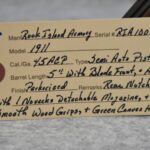 Man. Rock Island Armory Serial RIA100
Model 1911
Cal./Ga. 45ACP Type Semi Auto Pist
Barrel Length 5" With Blade Front,
Finish Parkerized Remarks Rear Notch
With 1 Novaks Detachable Magazine, +
Smooth Wood Grips + Green Canvas